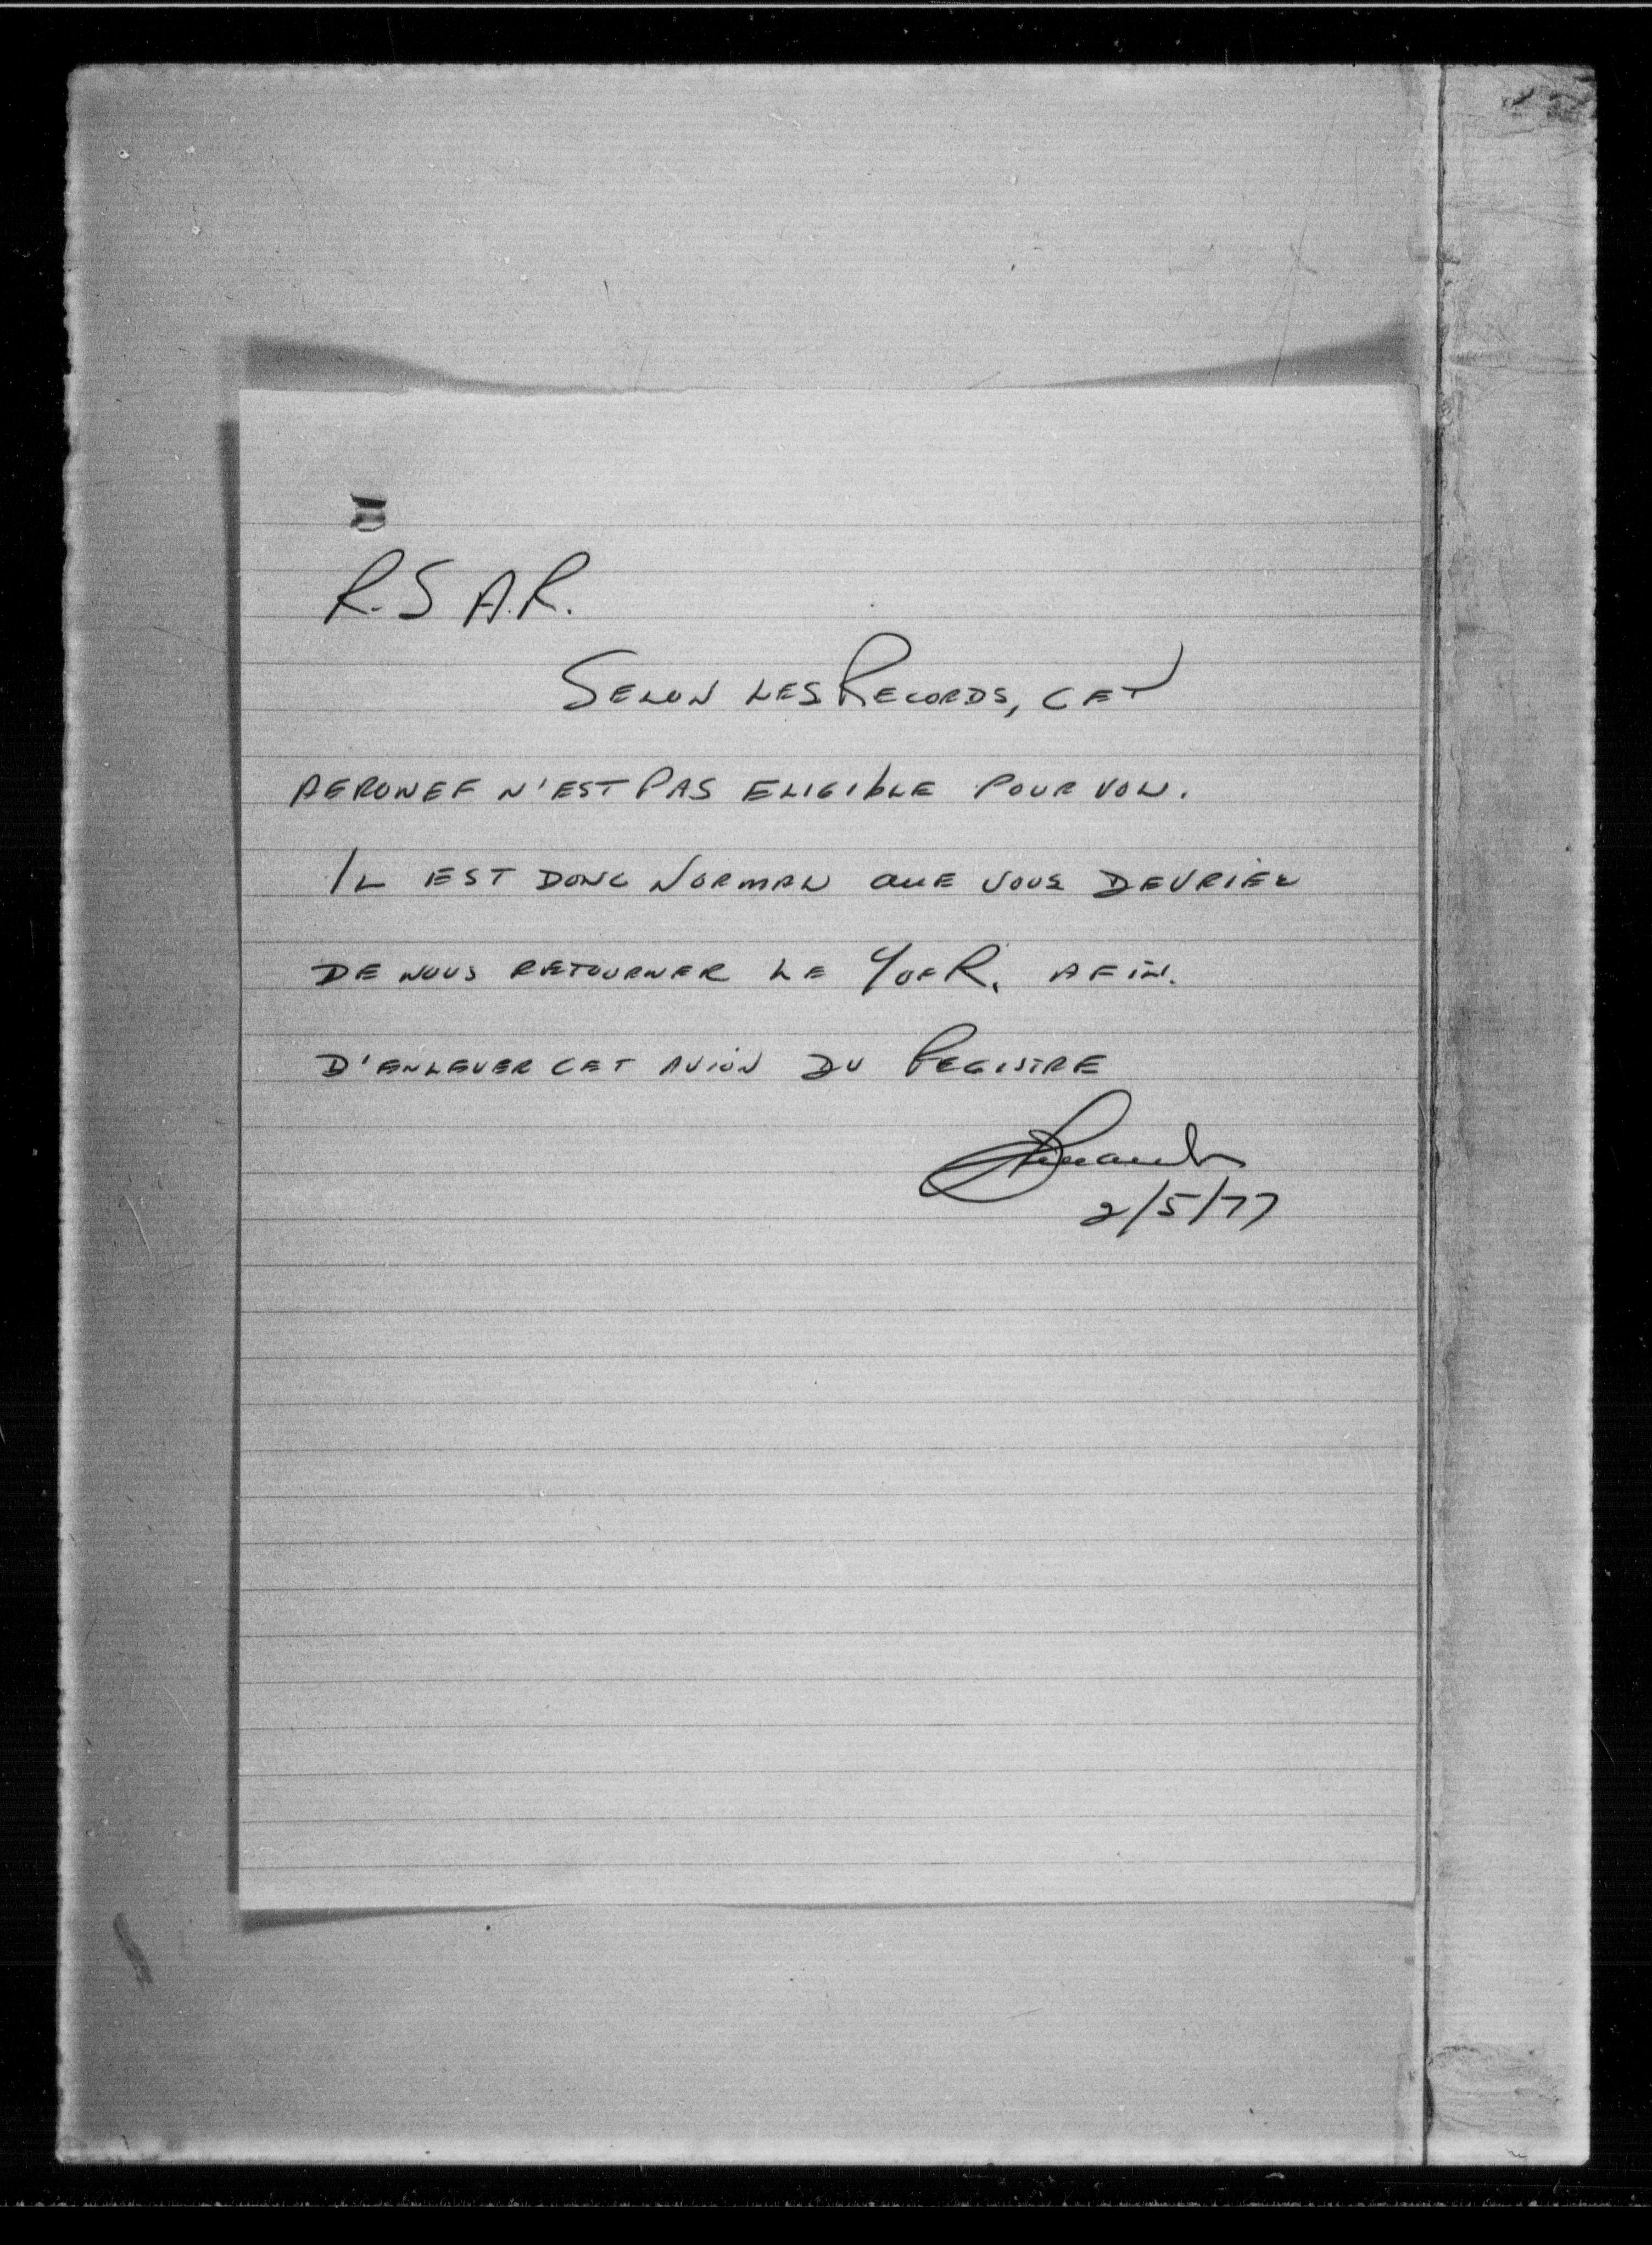 R.S A.R.
SELON LES RECORDS, CET
AERONEF N'EST PAS ELIGIBLE POUR VOL.
IL EST DONC NORMAL QUE VOUS DEVRIEZ
DE NOUS RETOURNER LE C of R. AFIN.
D'ENLEVER CET AVION DU REGISTRE
2/5/77